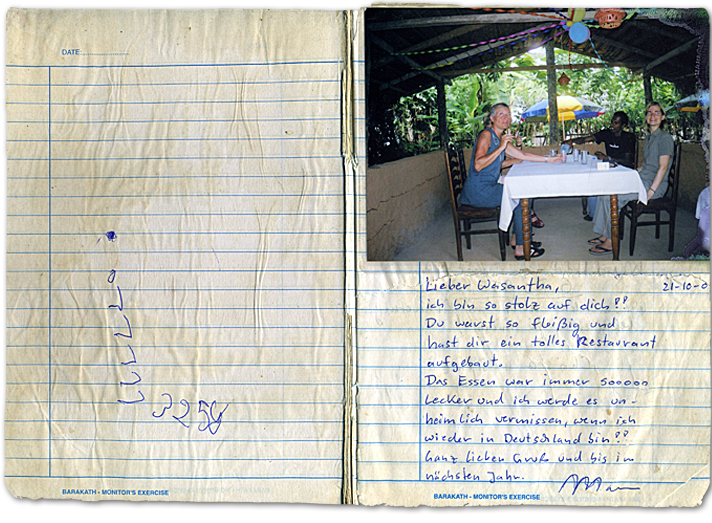 DATE:
3250
BARAKATH - MONITOR'S EXERCISE
Lieber Wasantha, 21-10-0
ich bin so stolz auf dich!!
Du warst so fleißig und
hast dir ein tolles Restaurant
aufgebaut.
Das Essen war immer sooooo
lecker und ich werde es un-
heimlich vermissen, wenn ich
wieder in Deutschland bin!!
Ganz lieben Gruß und bis im
nächsten Jahr.
BARAKATH - MONITOR'S EXERCISE